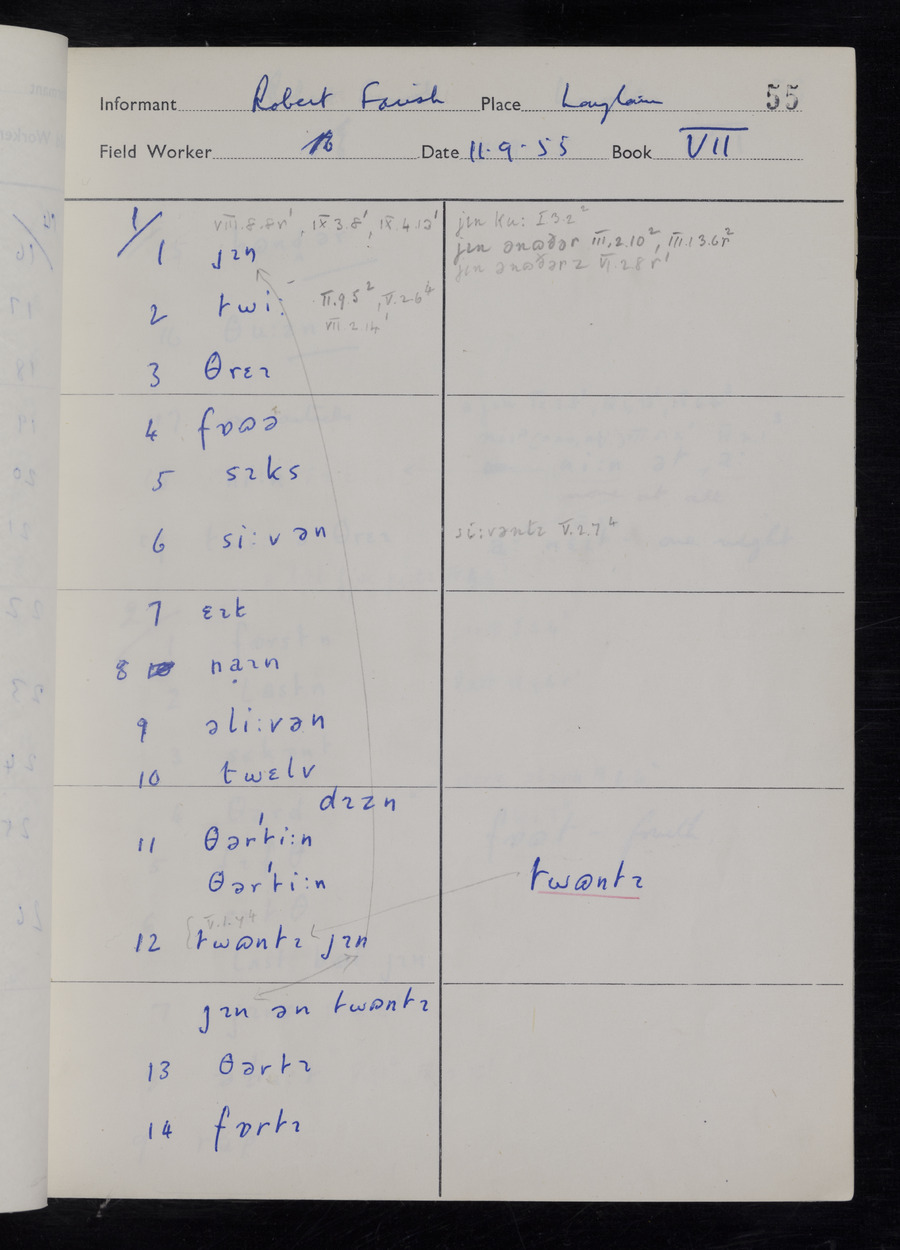 Informant Robert Farish Place Longtown 55
Field Worker Date 11·9·55 Book VII
1/ VIII.8.8r¹, IX.3.8¹, IX.4.13¹ jɪn ku: I 3.2²
1 jɪn jɪn ənɷðər III.2.10², III.13.6r²
jɪn ənɷðərz VI.2.8r¹
2 twi: II.9.5², V.2.6⁴
VII.2.14¹
3 θrɛɪ
4 fɒɷə
5 sɪks
6 si:vən si:vəntɪ V.2.7⁴
7 ɛɪt
8 na̠ɪn
9 əli:vən
10 twɛlv
dɪzn
11 θər'ti:n
θər'ti:n twɷntɪ
V.1.4⁴
12 twɷntɪ jɪn
jɪn ən twɷntɪ
13 θərtɪ
14 fɒrtɪ